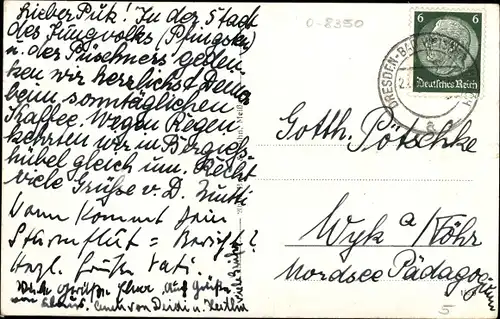 Lieber Puk! In der Stadt
des Jungvolks (Pfingsten)
u. der Püschners geden-
ken wir herzlichst Deiner
beim sonntäglichen
Kaffee. Wegen Regen
kehrten wir in Berggieß-
hübel gleich um. Recht
viele Grüße v. D. Mutti
Wann kommt Dein
Sturmflut = Bericht?
Hzgl. Grüße Vati.
Viele Grüße
auf Grüße
von Klaus. auch von Deidi u.
0-8350
6 6
Deutsches Reich
DRESDEN-BAD
a
Gotth. Pötschke
Wyk a Föhr
Nordsee Pädagogium
5